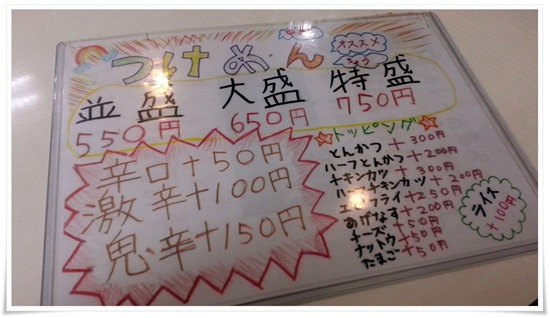 つけめん
オススメ
並盛 大盛 特盛
550円 650円 750円
辛口+50円
激辛+100円
鬼辛+150円
☆トッピング☆
とんかつ+300円
ハーフとんかつ+200円
チキンカツ+300円
ハーフチキンカツ+200円
エビフライ+250円
あげなす+200円
チーズ+50円
ナットウ+50円
たまご+50円
ライス
+100円